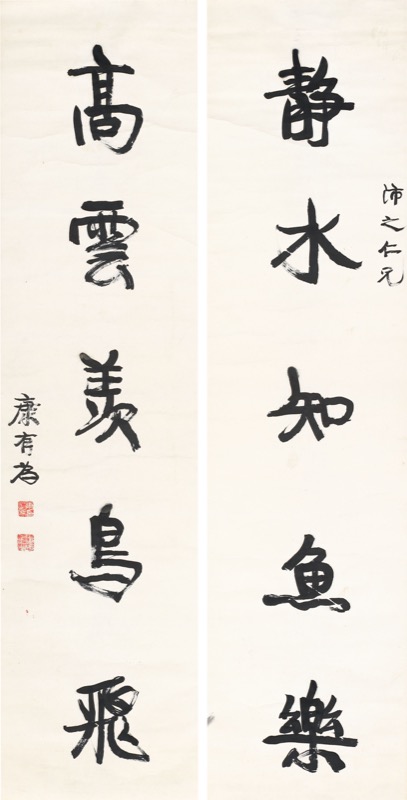 沛之仁兄
靜水知魚樂
高雲羨鳥飛
康有為